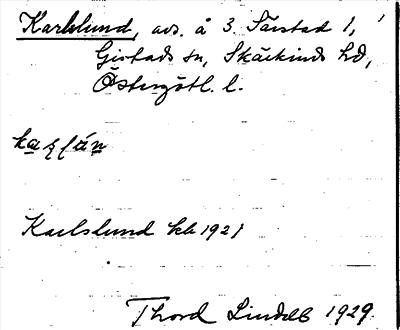 Karlslund, avs. å 3. Särstad 1,
Gistads sn, Skärkinds hd,
Östergötl. l.
Karlslund kb 1921
Thord Lindell 1929.